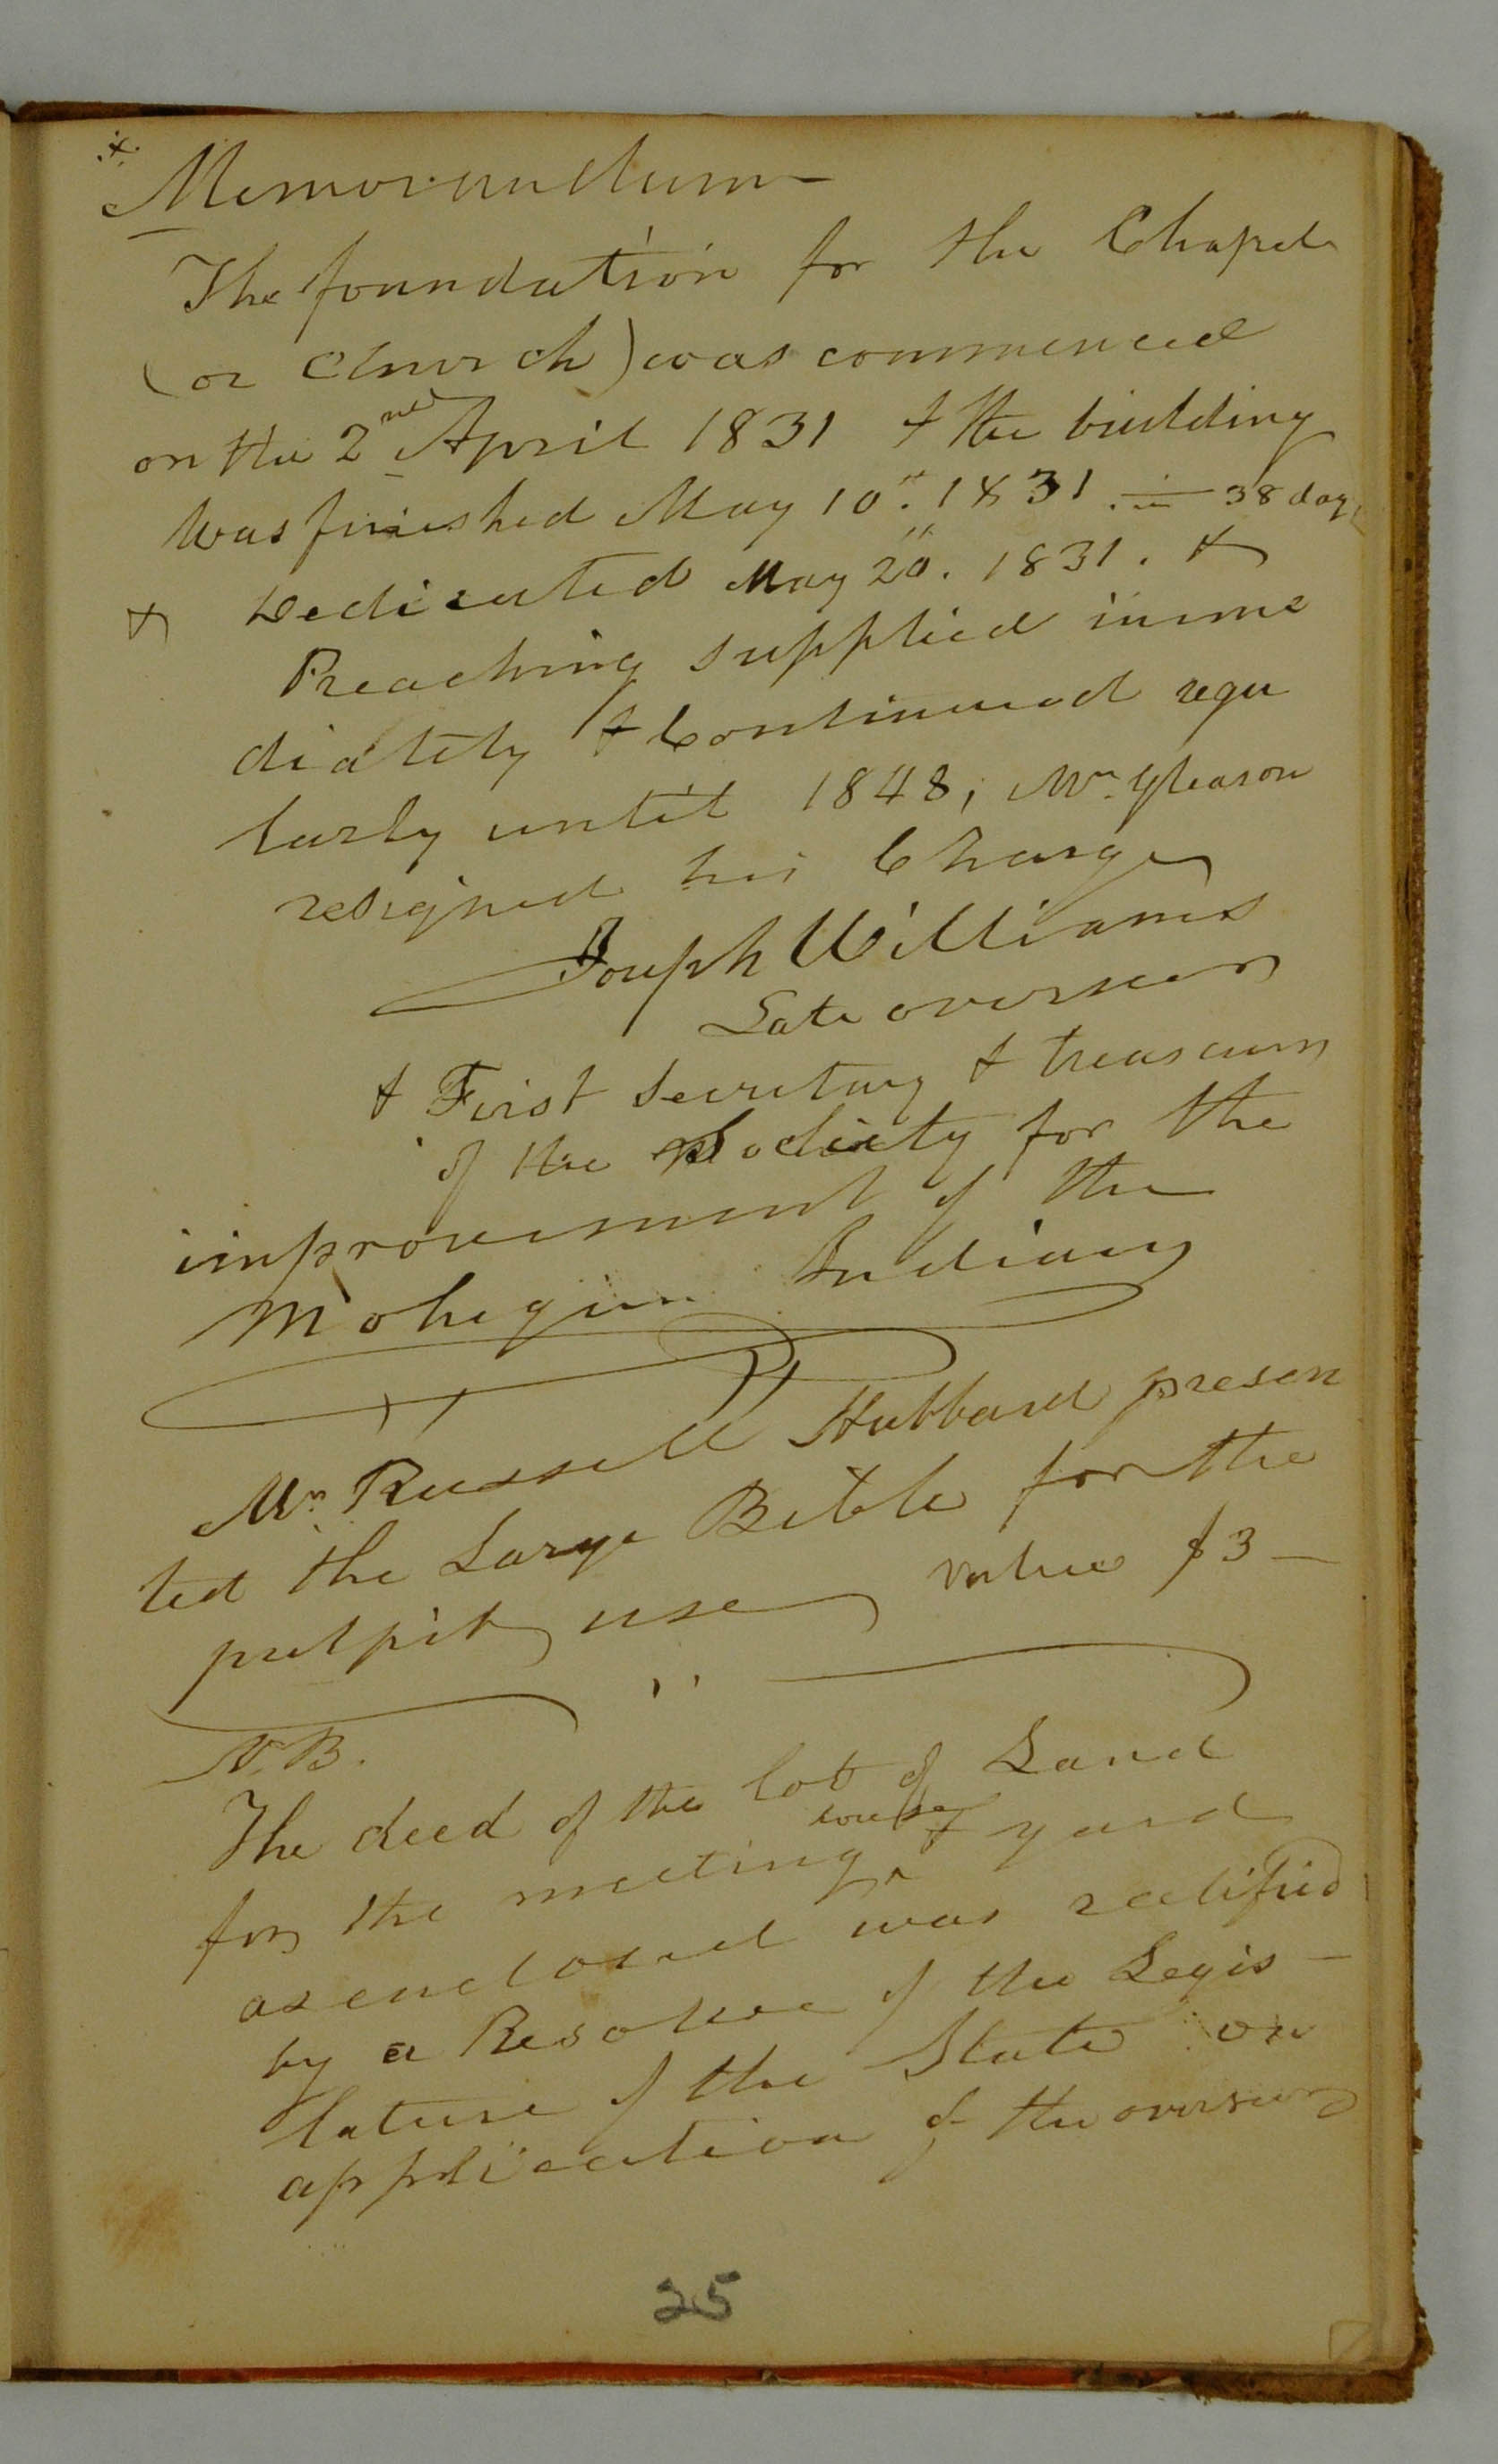 Memorandum
The foundation for the Chapel
(or Church) was commenced
on the 2nd April 1831 & the building
was finished May 10th. 1831. in 38 days
& Dedicated May 20". 1831. &
Preaching supplied imme
diately & Continued regu
larly until 1848; Mr. Gleason
resigned his Charge
Joseph Williams
Late overseer
& First Secretary & treasurer
of the Society for the
improvement of the
Mohegan Indians
Mr Russell Hubbard presen
ted the Large Bible for the
pulpit use value $3 —
N.B.
The deed of the lot of Land
for the meeting house & yard
as enclosed was ratified
by a Resolve of the Legis -
lature of the State on
application of the overseer
25